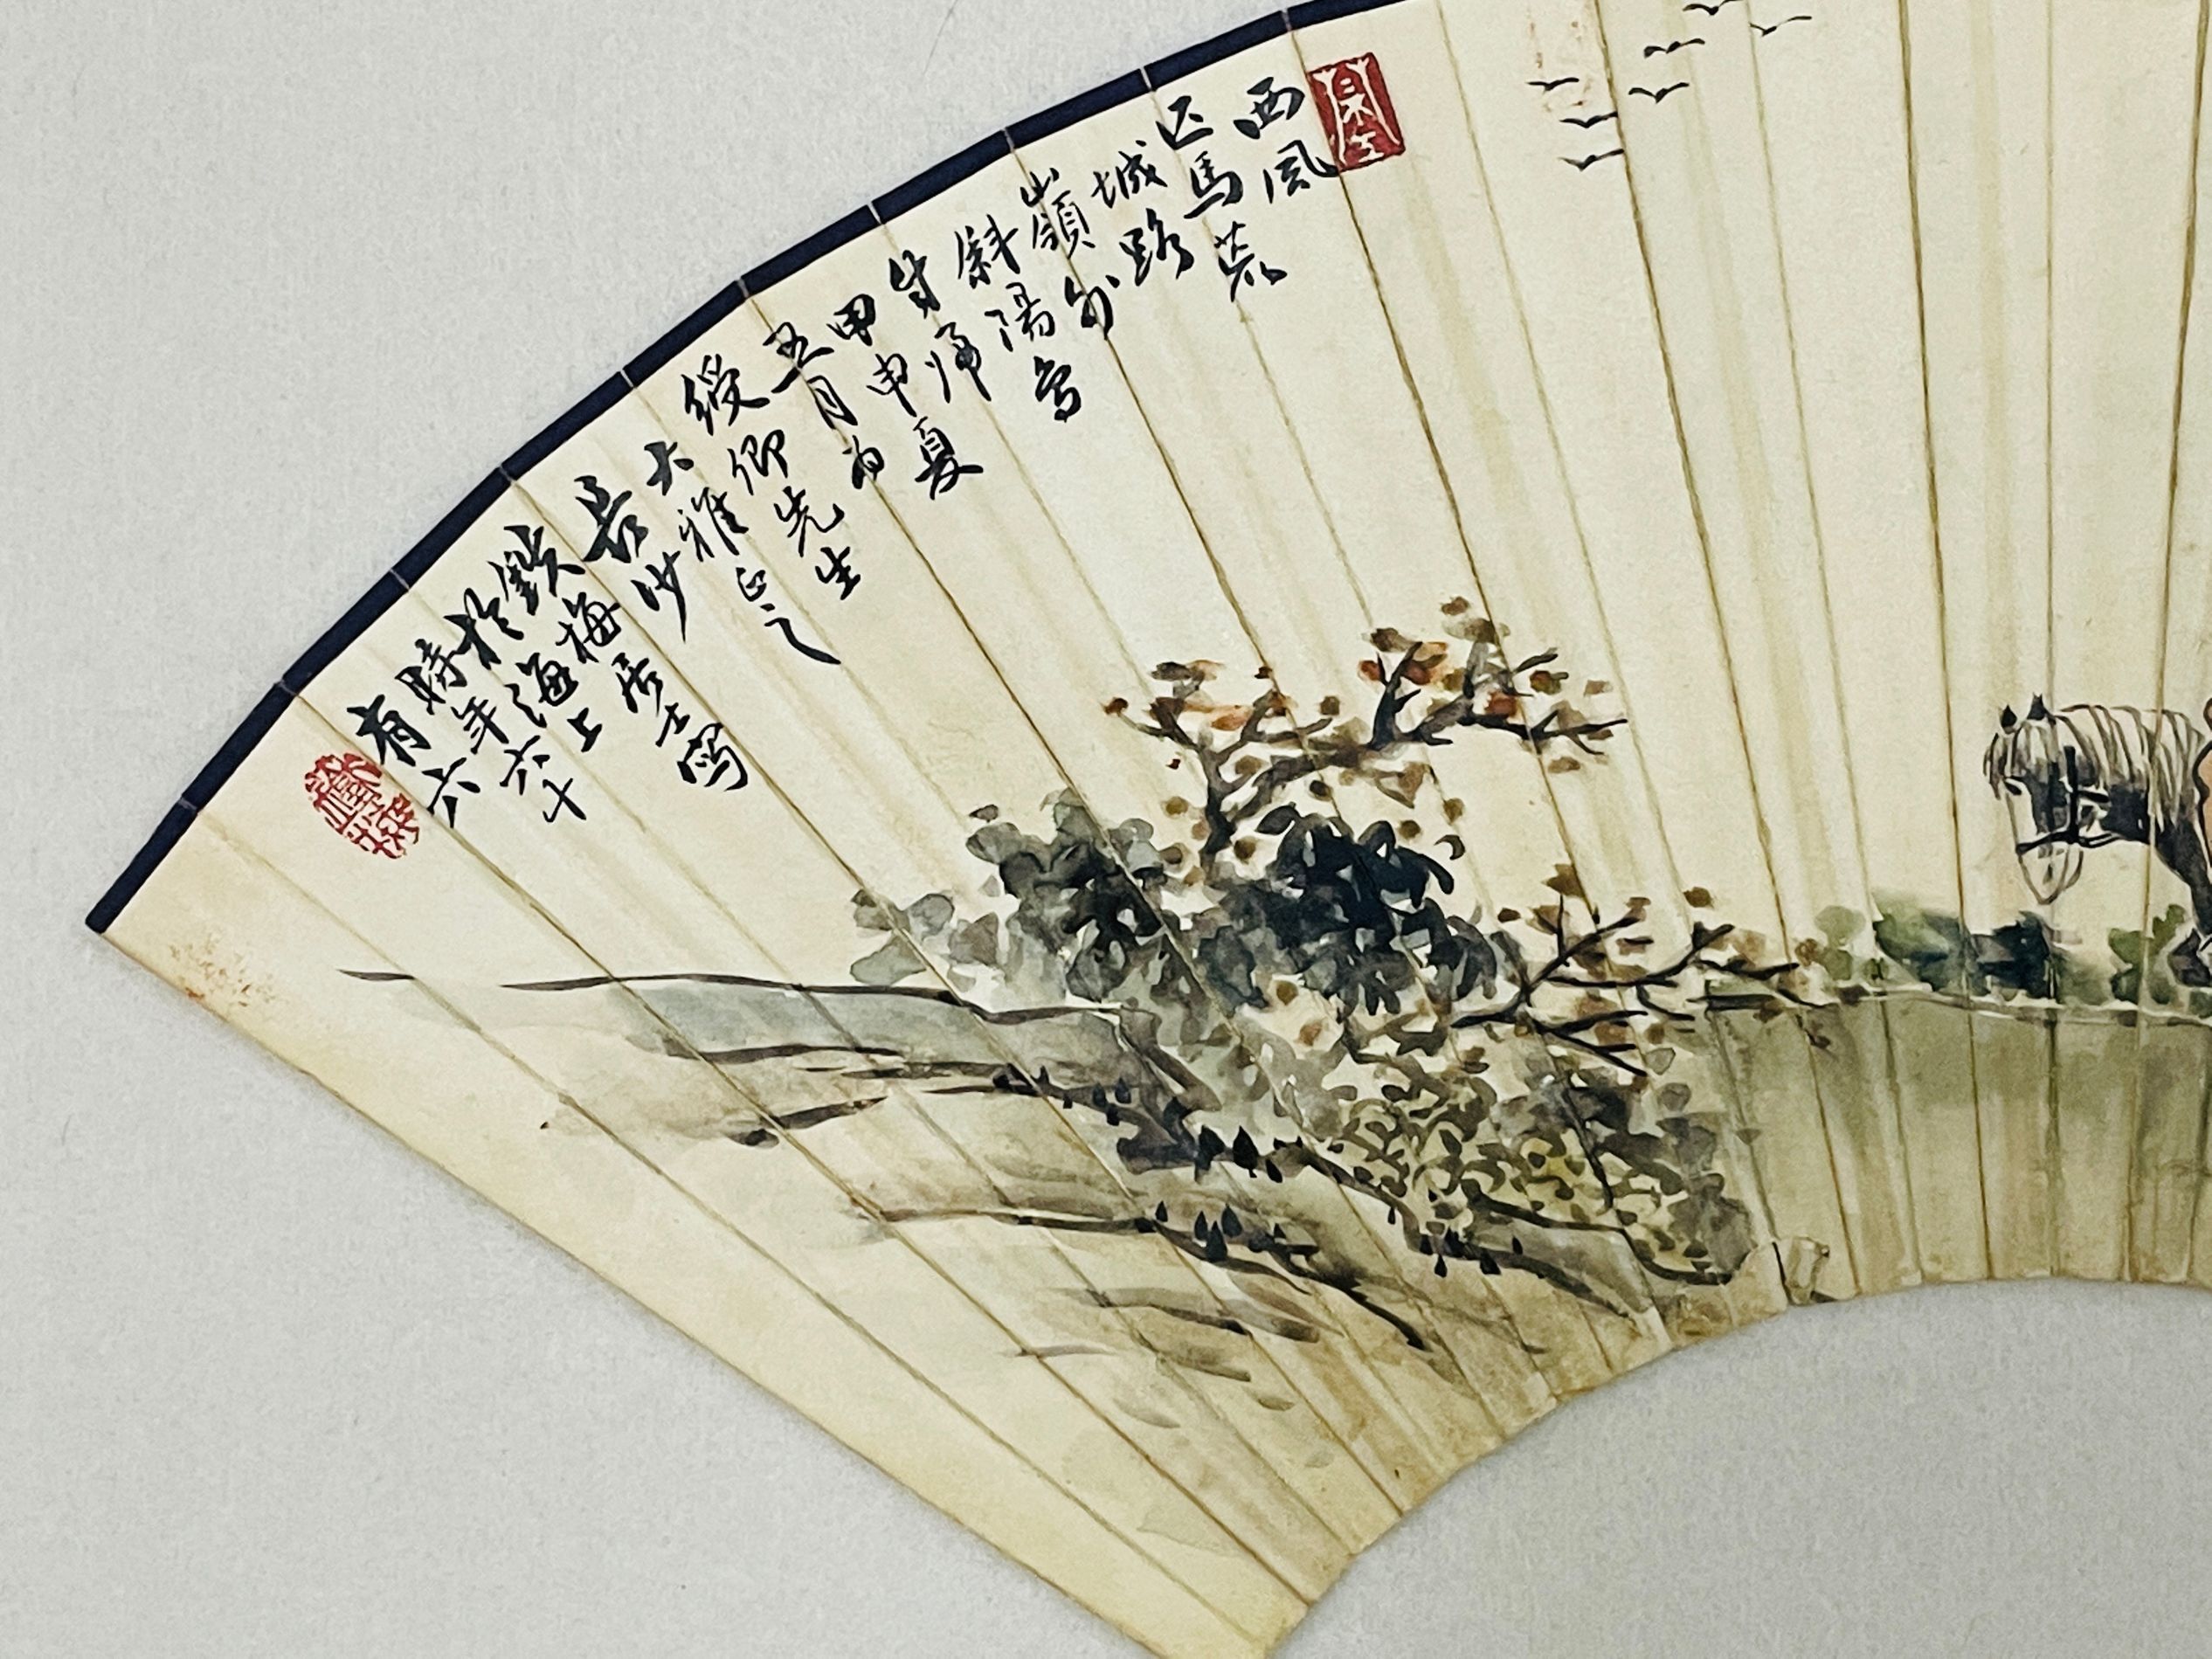 西風
匹馬荒
城路
嶺外
斜陽鳥
背歸
甲申夏
五月為
綬卿先生
大雅正之
長沙
鐵梅居士寫
於海上
時年六十
有六